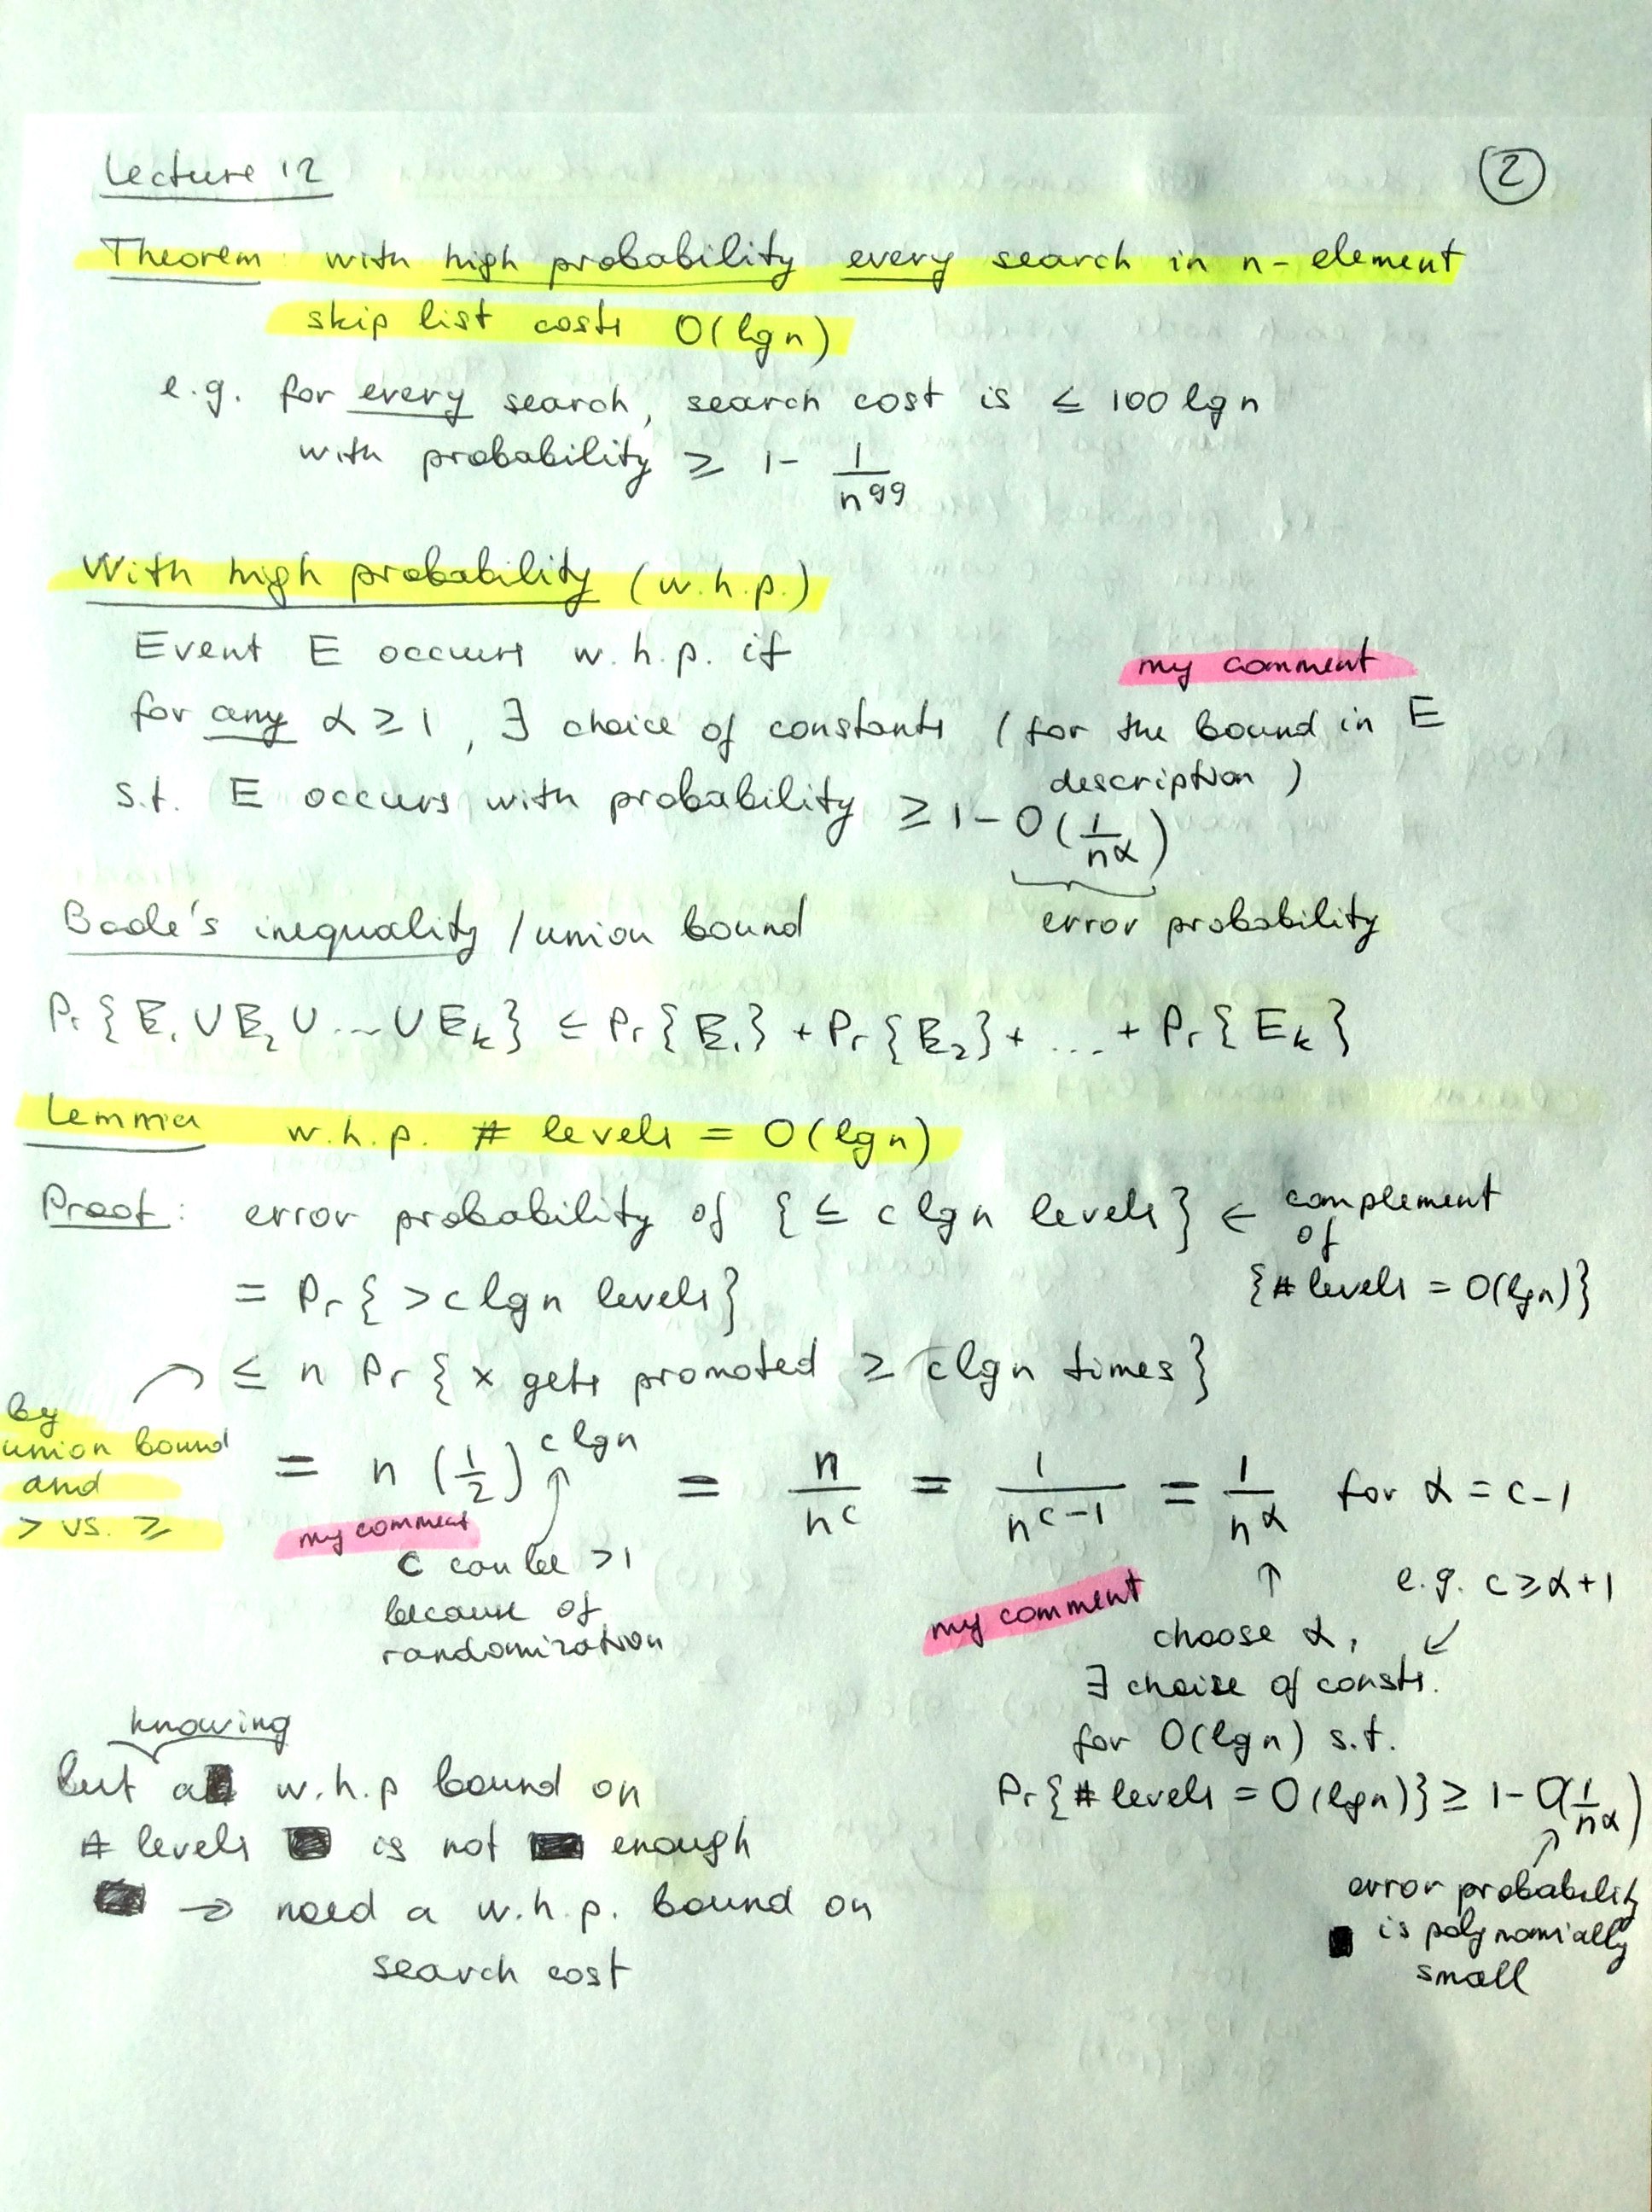 Lecture 12
2
Theorem: with high probability every search in n-element
skip list costs O(lg n)
e.g. for every search, search cost is ≤ 100 lg n
with probability ≥ 1 - 1/n^99
With high probability (w.h.p.)
Event E occurs w.h.p. if
my comment
for any α ≥ 1, ∃ choice of constants (for the bound in E
description)
s.t. E occurs with probability ≥ 1 - O(1/n^α)
error probability
Boole's inequality / union bound
Pr{E₁ ∪ E₂ ∪ ... ∪ E_k} ≤ Pr{E₁} + Pr{E₂} + ... + Pr{E_k}
Lemma w.h.p. # levels = O(lg n)
Proof: error probability of {≤ c lg n levels} ← complement
of
{# levels = O(lg n)}
= Pr{> c lg n levels}
≤ n Pr{x gets promoted ≥ c lg n times}
by
union bound
and
> vs. ≥
= n (1/2)^(c lg n) = n/n^c = 1/n^(c-1) = 1/n^α for α = c-1
my comment
c can be >1
because of
randomization
e.g. c ≥ α+1
my comment
choose α, ↙
∃ choise of consts.
for O(lg n) s.t.
Pr{# levels = O(lg n)} ≥ 1 - O(1/n^α)
error probability
is polynomially
small
knowing
but a w.h.p bound on
# levels is not enough
→ need a w.h.p. bound on
search cost